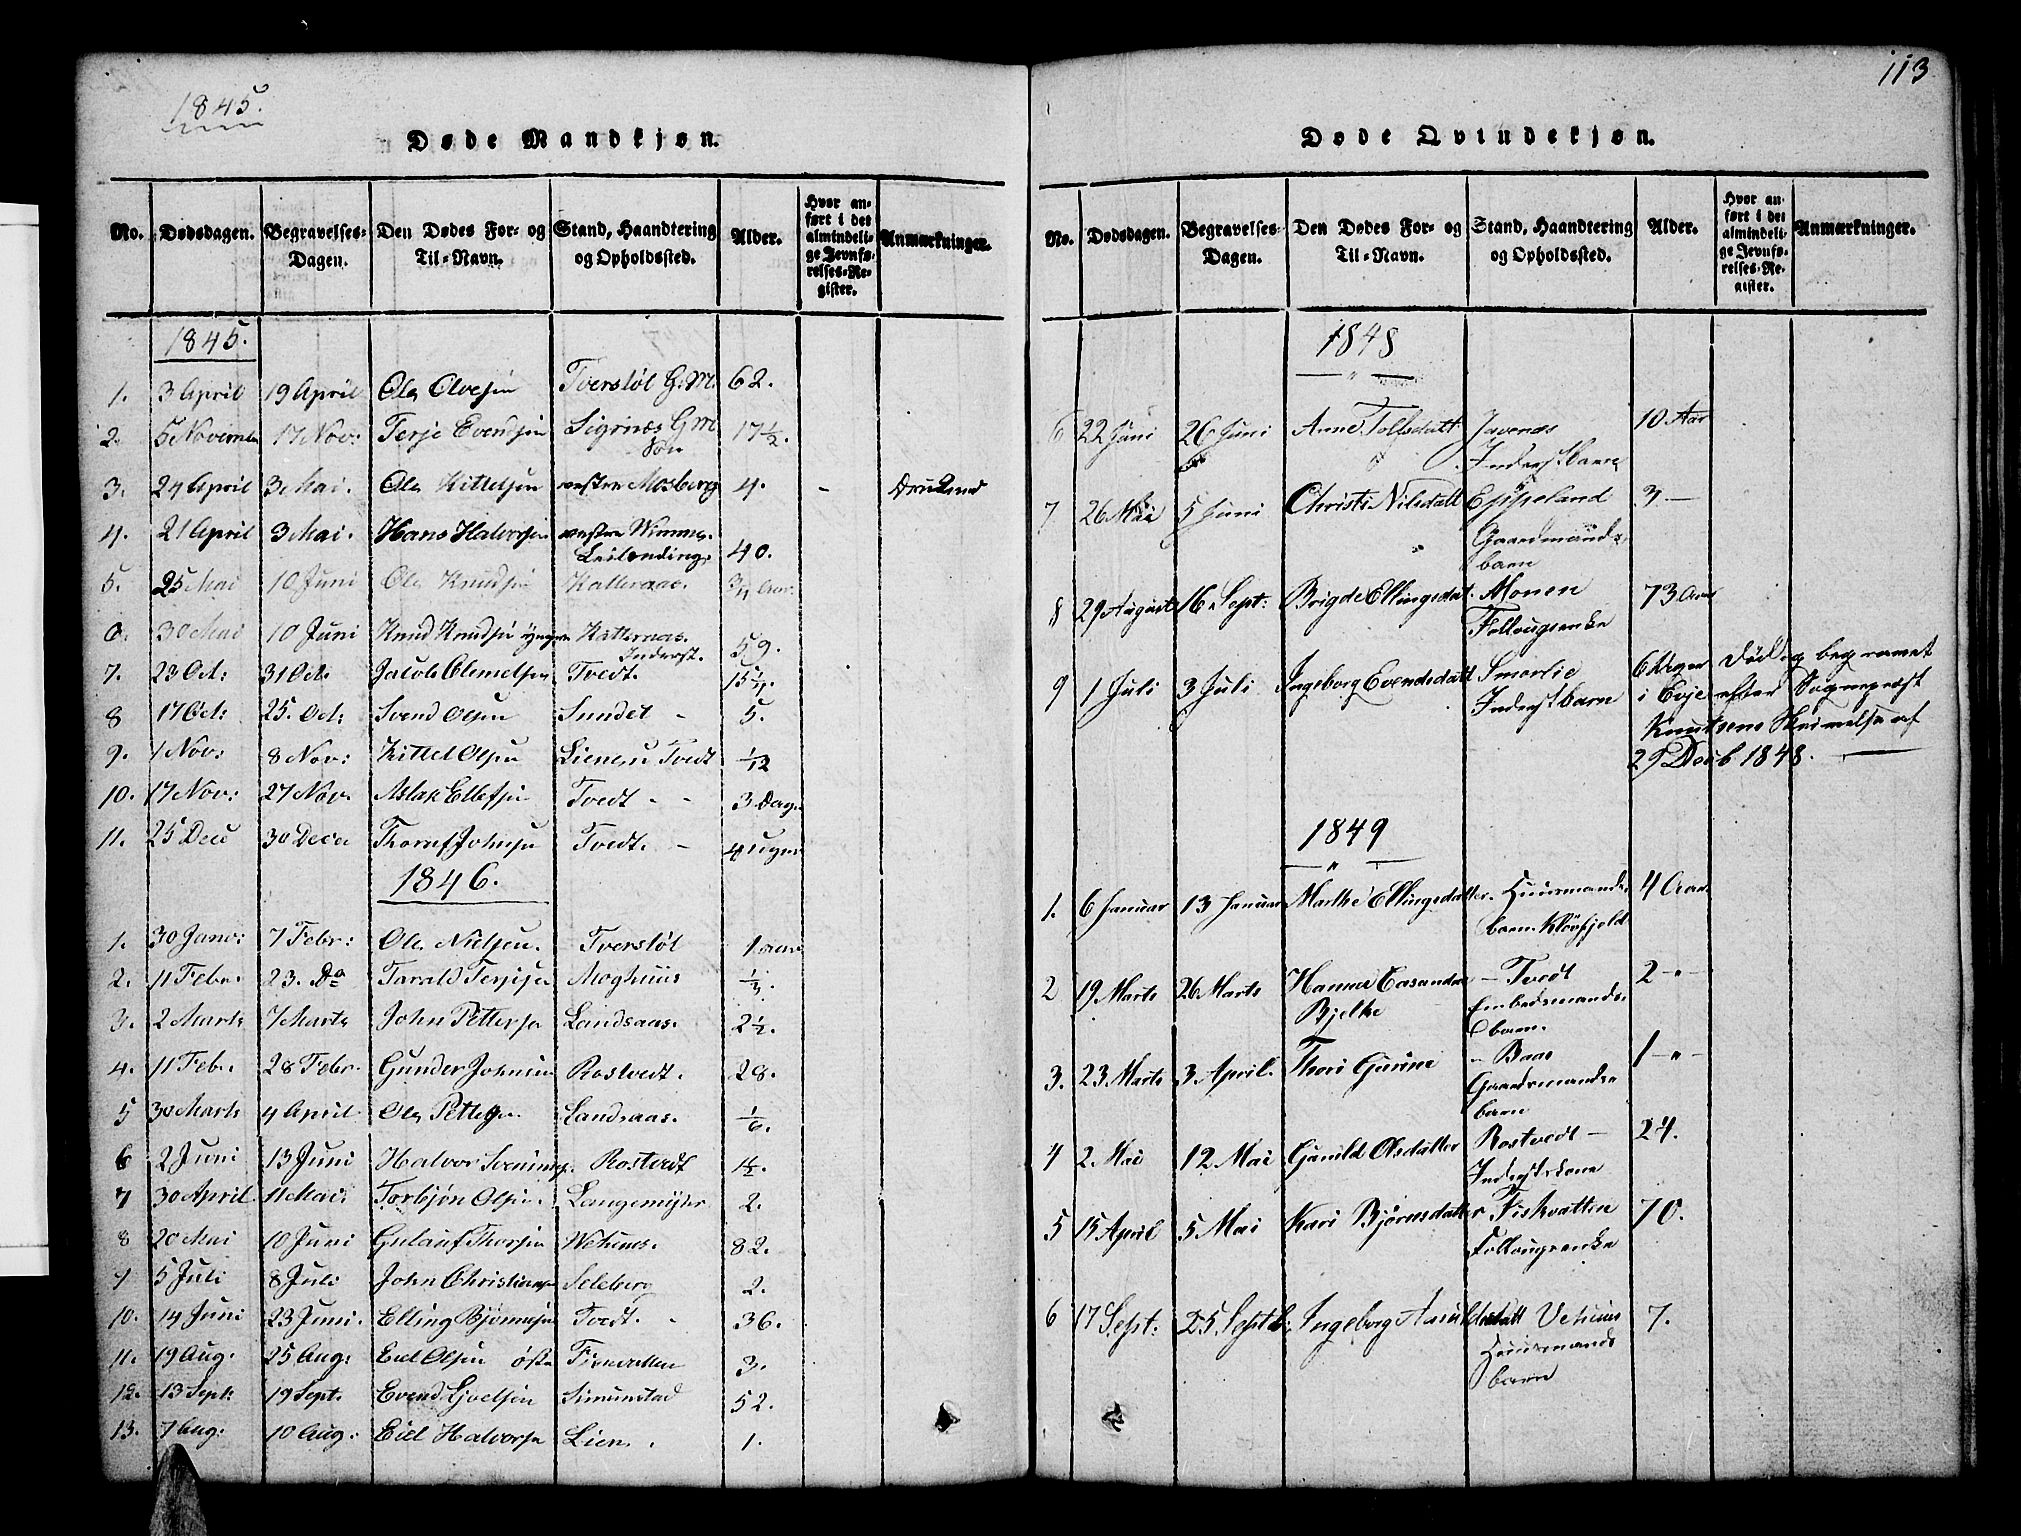 1845.
Døde Mandkjøn.
No. Dødsdagen. Begravelses-Dagen. Den Dødes For- og Til-Navn. Stand, Haandtering og Opholdssted. Alder. Hvor anført i det almindelige Jevnførelses-Register. Anmærkninger.
1845.
1. 3 April 19 April Ole Olvesen Tversløl G.M. 62.
2. 5 Novemen 17 Nov: Terje Evendsen Sigrnæs G M Søn 17½.
3. 24 April 3 Mai. Ole Kittelsen vestre Mosberg 4. - Druknet
4. 21 April 3 Mai. Hans Halvorsen vestre Leilending 40.
5. 25 Mai 10 Juni Ole Knudsen Katteraas. 3/4 Aar.
6. 30 Mai 10 Juni Knud Knudsen yngre Katteraas. Inderst. 59.
7. 23 Oct: 31 Oct. Jacob Clemetsen Tvedt. 15¼.
8 17 Oct: 25. Oct: Svend Olsen Sundet - 5.
9. 1 Nov: 8 Nov: Kittel Olsen Tvedt 1/12
10. 17 Nov: 27 Nov. Aslak Ellefsen Tvedt - - 3 Dage
11. 25 Dec 30 Dece Johnsen Tvedt. - 4 uger
1846.
1. 30 Jano: 7 Febr: Ole Nielsen. Tversløl 1 aar
2. 11 Febr. 23. Do Tarald Terjesen Moghuus 1/3.
3. 2 Marts 7 Marts John Pettersen Landsaas. 2½.
4. 11 Feb. 28 Febr. Gunder Johnsen Rostvedt. 28.
5 30 Marts 4 April Ole Pettersen Landsaas. 1/6.
6 2 Juni 13 Juni Halvor Rostvedt 1½.
7 30 April 11 Mai. Torbjøn Olsen. Langemyhr 2.
8 20 Mai 10 Juni Gulauf Thorsen Vehuus. 82.
9 5 Juli 8 Juli John Christiansen Seleberg 2.
10. 14 Juni 23 Juni. Elling Bjørnsen Tvedt. - 36.
11. 19 Aug. 25 Aug: Eiel Olsen østre Fiskvatten 3.
12. 13 Sept: 19 Sept. Evend Simunstad 52.
13. 7 Aug: 10 Aug: Eiel Halvorsen Lien. 1.
113
Døde Qvindekjøn.
No. Dødsdagen. Begravelses-Dagen. Den Dødes For- og Til-Navn. Stand, Haandtering og Opholdssted. Alder. Hvor anført i det almindelige Jevnførelses-Register. Anmærkninger.
1848
6 22 Juni 26 Juni Anne Tolfsdatt. Javenæs 10 Aar
Inderstbarn
7 26 Mai 5 Juni Christi Nilsdatt Eppeland 3 —
Gaardmands
barn
8 29 August 16 Sept: Brigde Ellingsdat. Monen 73 Aar
Follougsenke
9 1 Juli 3 Juli Ingeborg Evendsdatt Smørlie 6 Uger Død og begravet
Inderstbarn i Evje efter Sognepræst
Knutsens Skrivelse af
29 Decb 1848. —
1849
1. 6 Januar 13 Januar Marthe Ellingsdatter. Huusmands 4 Aar
barn Kløvfjeld
2 19 Marts 26 Marts Hanna Casandra - Tvedt 2 -"-
Bjelke Embedsmands
barn.
3. 23 Marts 3 April. Thori Gurine - Baas 1 -"-
Gaardsmands
barn
4 2. Mai 12 Mai Gunild Olsdatter Rostvedt - 24.
Inderstkone
5 15 April 5 Mai Kari Bjørnsdatter Fiskvatten 70.
Follougsenke
6 17 Sept: 25 Septb: Ingeborg Vehuus 7.
Huusmands
barn